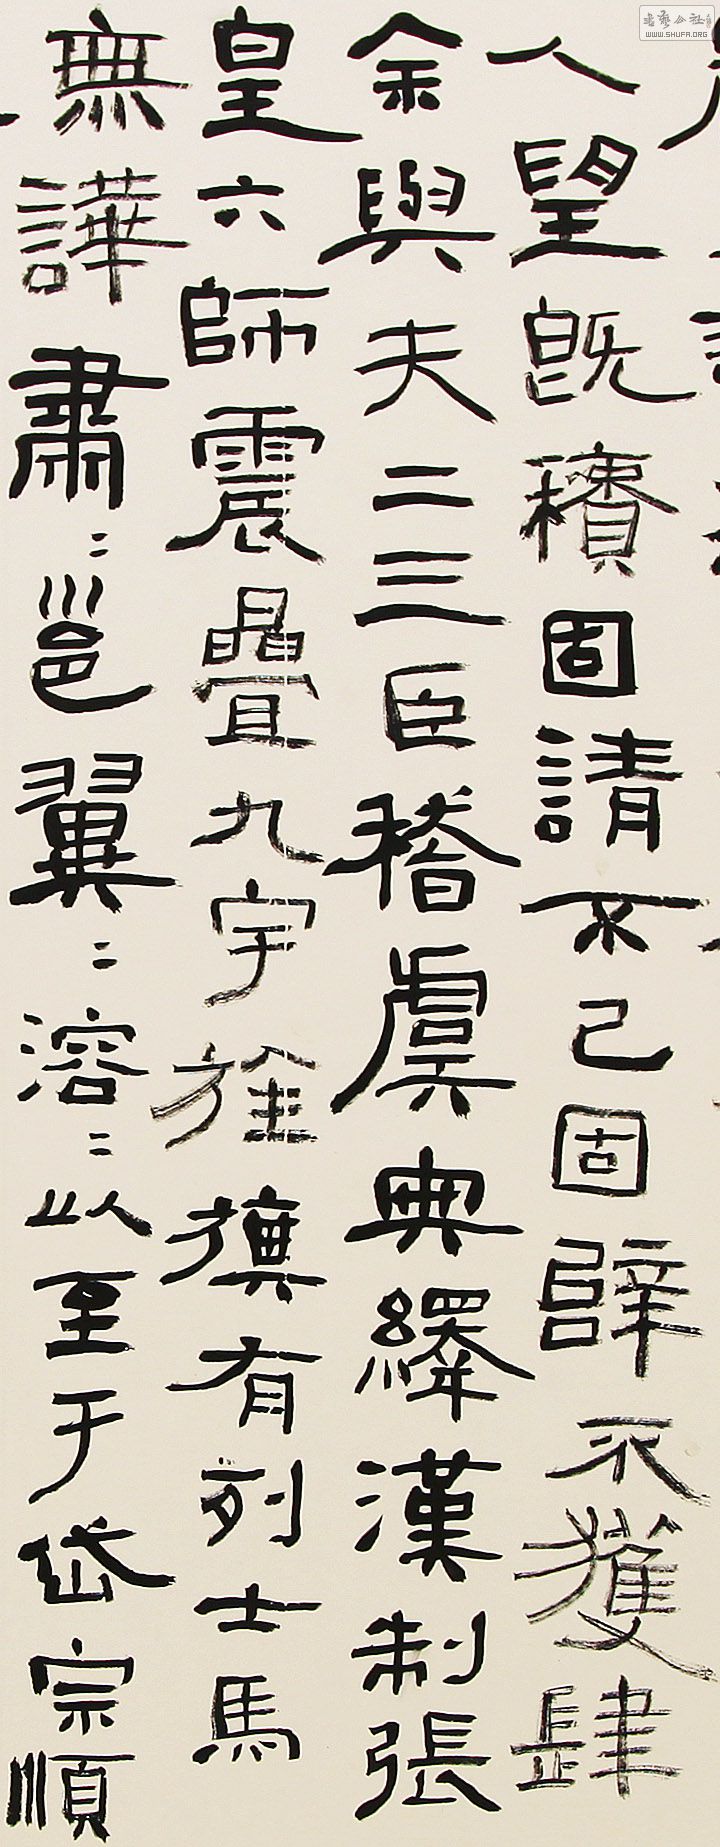 人望既積固請不已固辭不獲肆
余與夫二三臣稽虞典繹漢制張
皇六師震疊九宇旌旗有列士馬
無譁肅〻邕翼〻溶〻以至于岱宗順
书艺公社
WWW.SHUFA.ORG